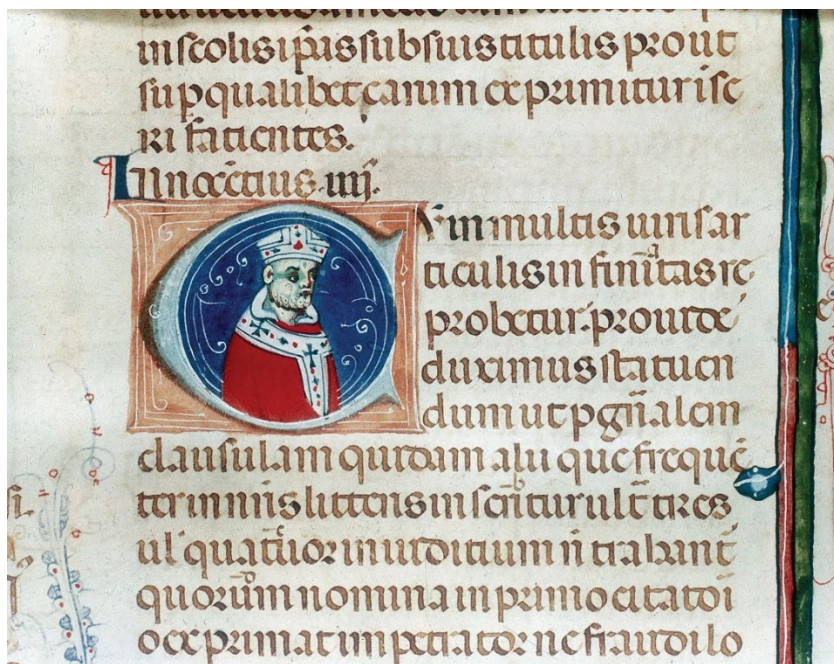 in scolis ip̄as sub suis titulis prout
sup qualibet earum exprimitur ise
ri facientes.
Innocētius iiij.
Vm in multis iuris ar
ticulis infinitas re
probetur. prouide
duximus statuen
dum ut p gn̄alem
clausulam quidam alii que frequē
ter in nr̄is litteris inscribitur ult tres
ul quatuor in iudicium n̄ trahant̄
quorum nomina in primo citatōi
o exprimat impetrator ne fraudi lo